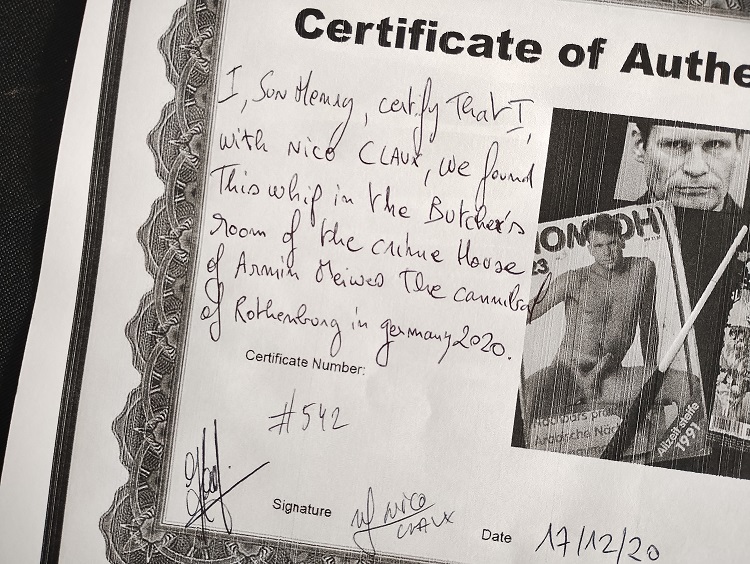 Certificate of Authe
I, Son Henry, certify That I,
with NICO CLAUX, we found
This whip in the Butcher's
room of the crime House
of Armin Meiwes The cannibal
of Rothenburg in germany 2020.
Certificate Number:
#542
Signature
NICO
CLAUX
Date
17/12/20
23
1991